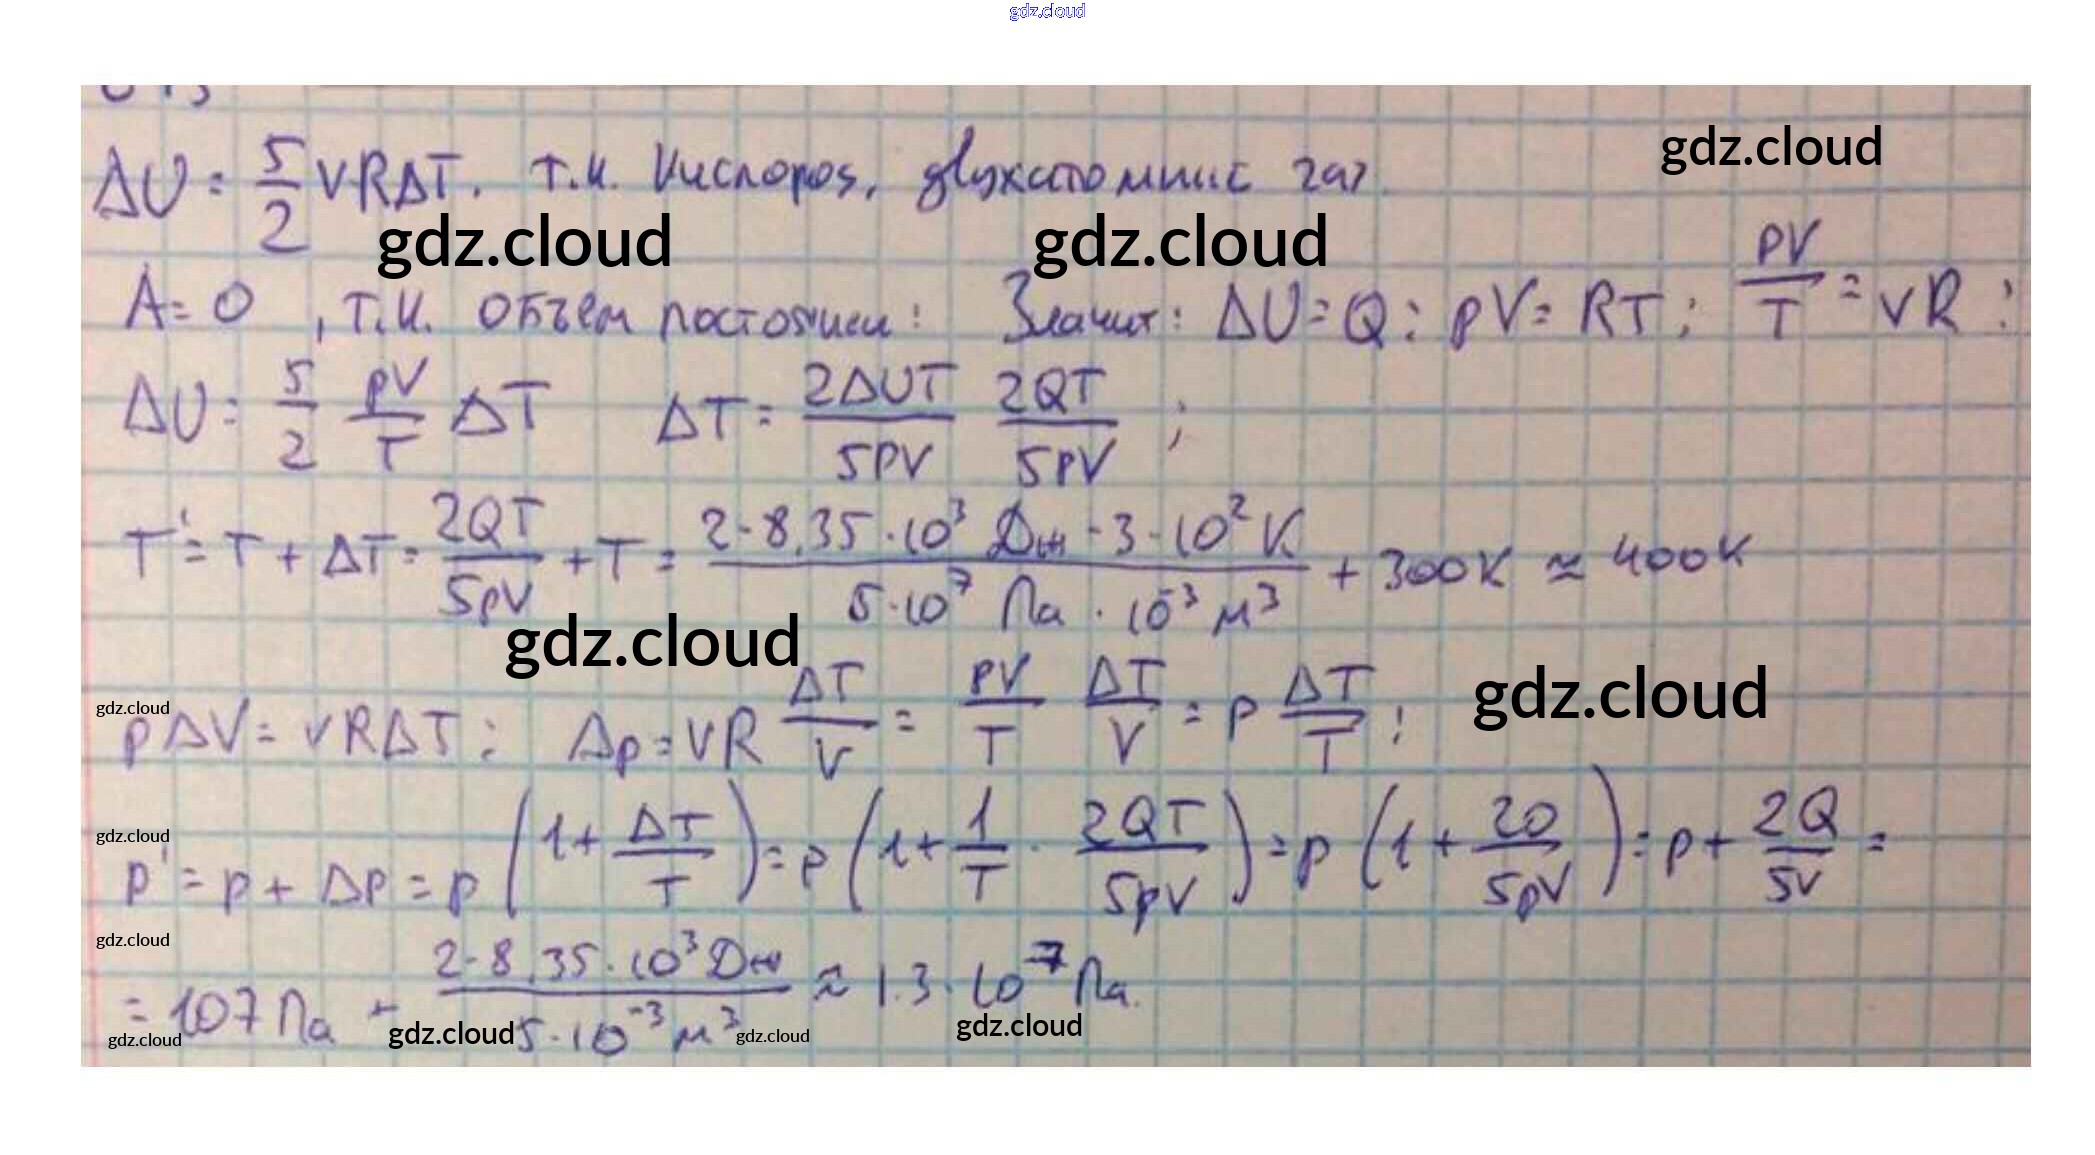 gdz.cloud
ΔU = 5/2 νRΔT. т.к. Кислород, двухатомный газ.
gdz.cloud
gdz.cloud gdz.cloud
A = 0, т.к. объем постоянен: Значит: ΔU = Q: pV = RT; PV/T = νR:
ΔU = 5/2 pV/T ΔT ΔT = 2ΔUT/5PV 2QT/5PV ;
T' = T + ΔT = 2QT/5pV + T = 2·8,35·10³ Дж·3·10² К/5·10⁷ Па·10⁻³ м³ + 300К ≈ 400К
gdz.cloud gdz.cloud
gdz.cloud
pΔV = νRΔT: Δp = νR ΔT/V = PV/T ΔT/V = p ΔT/T ;
gdz.cloud
p' = p + Δp = p(1 + ΔT/T) = p(1 + 1/T · 2QT/5pV) = p(1 + 2Q/5pV) = p + 2Q/5V =
gdz.cloud
= 107 Па + 2·8,35·10³ Дж/5·10⁻³ м³ ≈ 1.3·10⁻⁷ Па.
gdz.cloud gdz.cloud gdz.cloud gdz.cloud